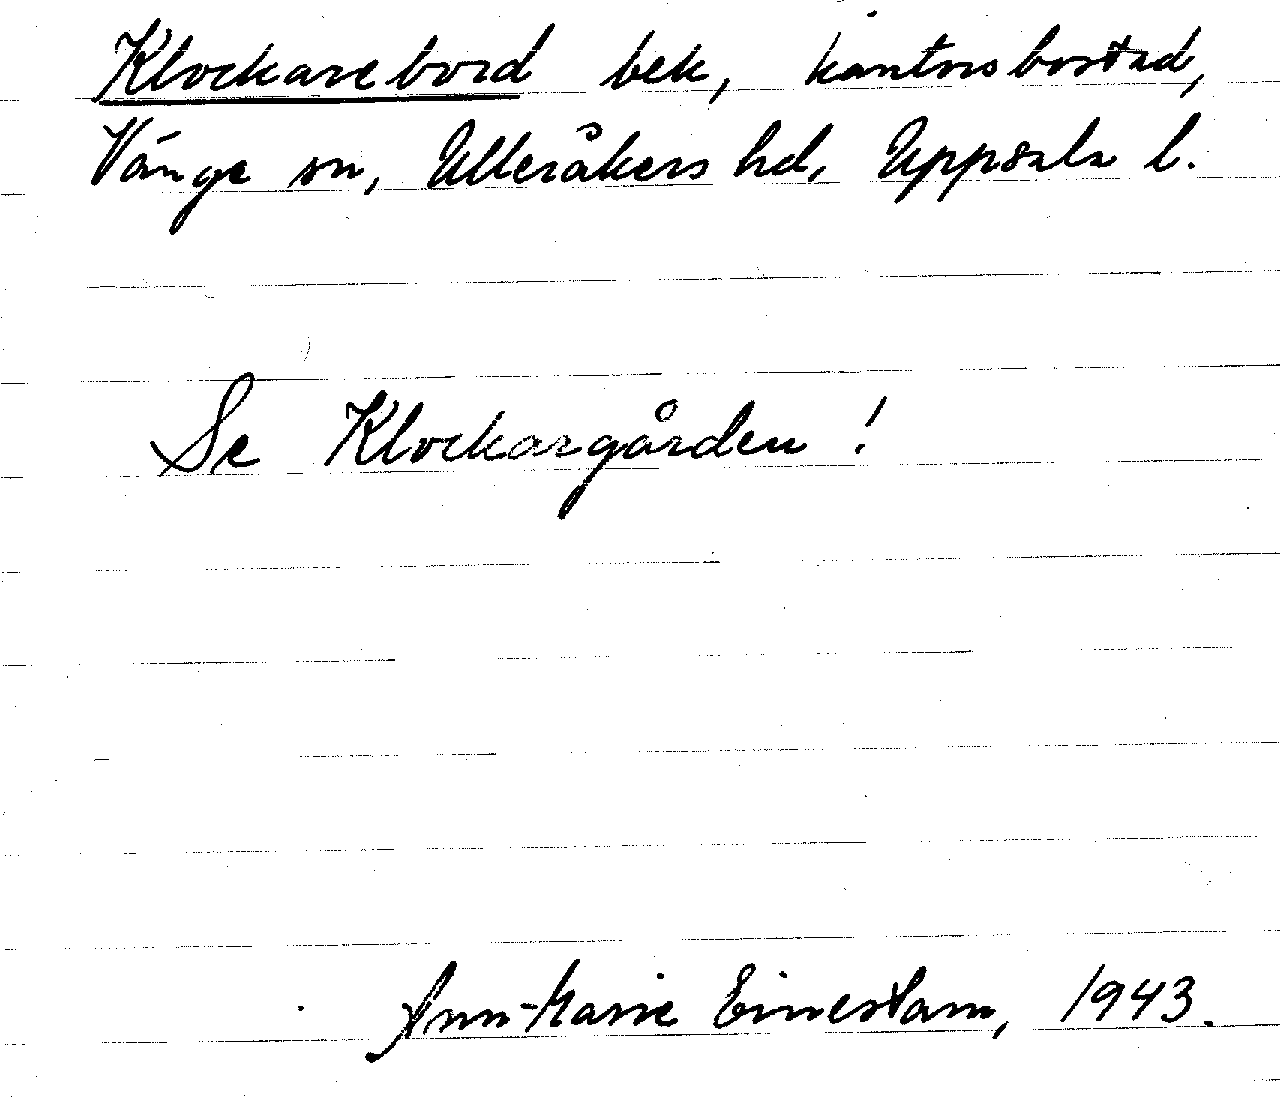 Klockarebord bek, kantorsbostad,
Vänge sn, Ulleråkers hd, Uppsala l.
Se Klockargården !
Ann-Marie Einestam, 1943.